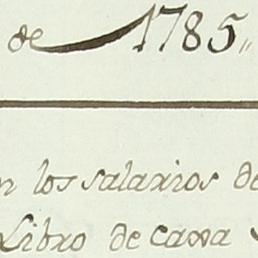 de 1785,,
n los salarios de
Libro de caxa